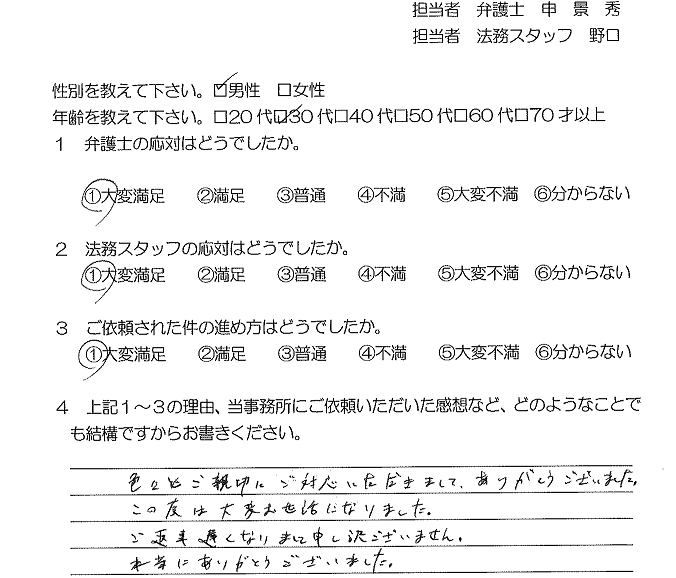 担当者　弁護士　申　景　秀
担当者　法務スタッフ　野口
性別を教えて下さい。☑男性　□女性
年齢を教えて下さい。□20代☑30代□40代□50代□60代□70才以上
１　弁護士の応対はどうでしたか。
①大変満足　②満足　③普通　④不満　⑤大変不満　⑥分からない
２　法務スタッフの応対はどうでしたか。
①大変満足　②満足　③普通　④不満　⑤大変不満　⑥分からない
３　ご依頼された件の進め方はどうでしたか。
①大変満足　②満足　③普通　④不満　⑤大変不満　⑥分からない
４　上記１～３の理由、当事務所にご依頼いただいた感想など、どのようなことで
も結構ですからお書きください。
色々とご親切にご対応いただきまして、ありがとうございました。
この度は大変お世話になりました。
ご返事遅くなりまして申し訳ございません。
本当にありがとうございました。